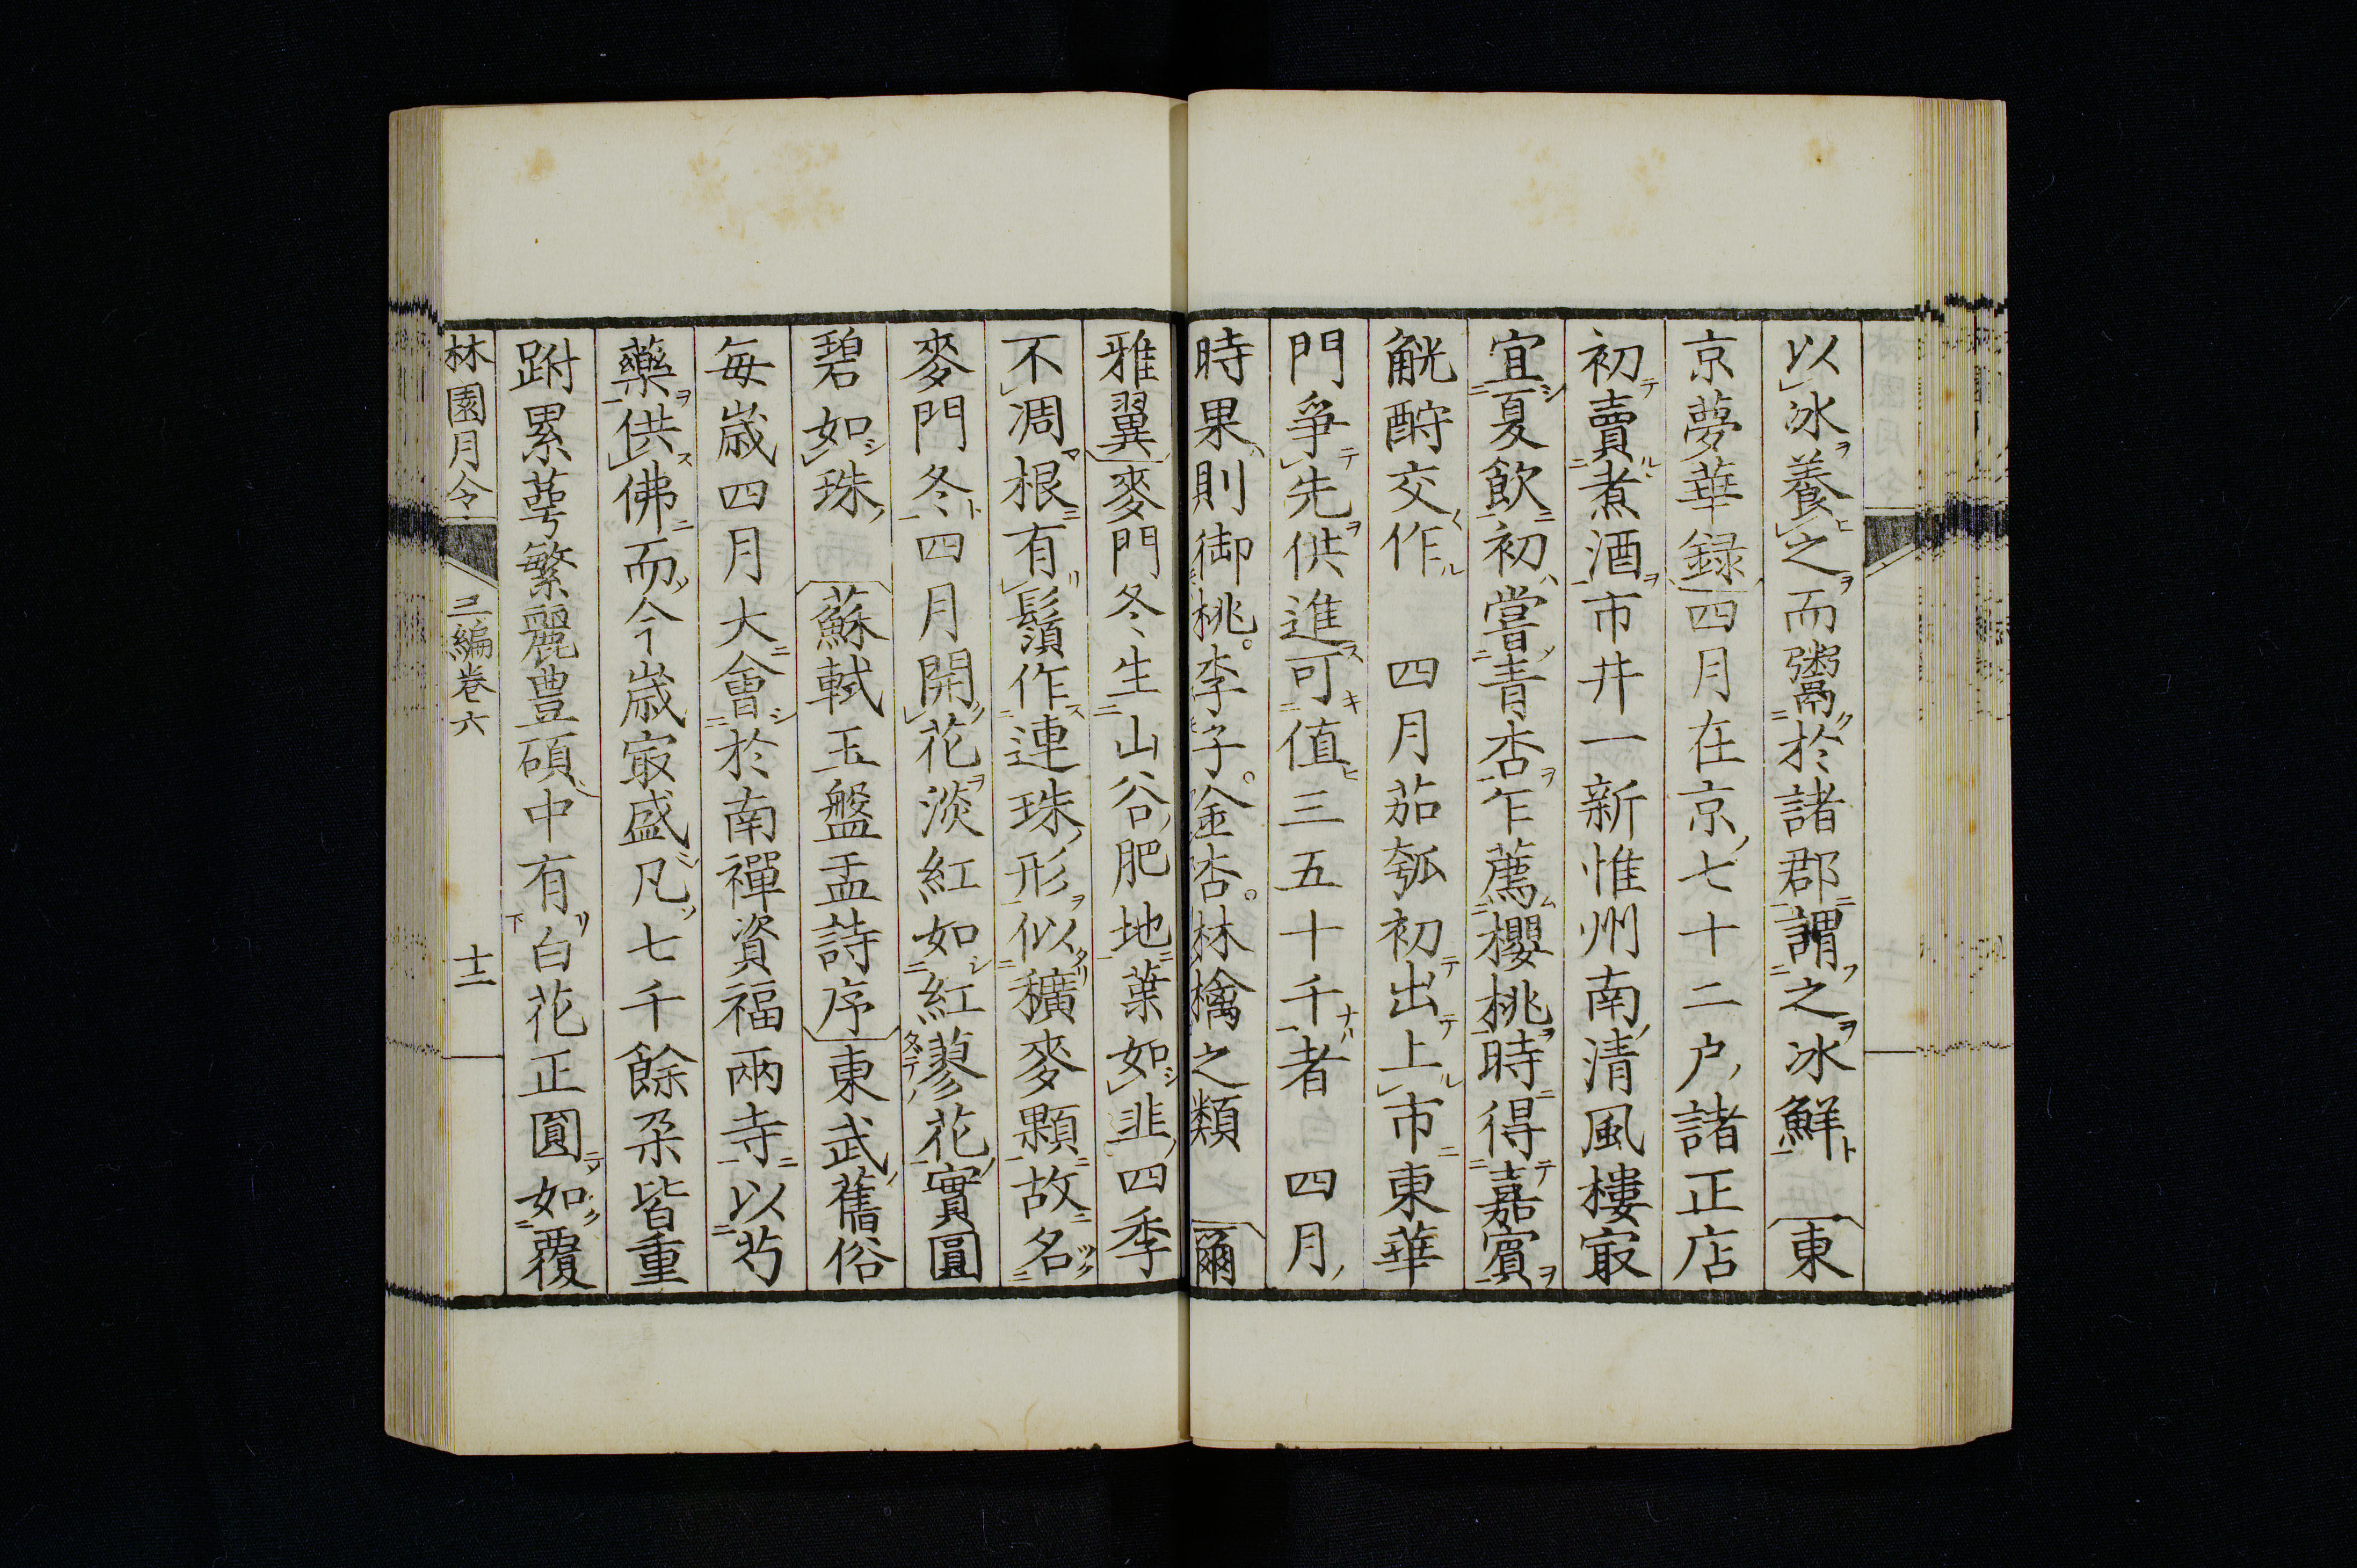 以冰養之而鬻於諸郡謂之冰鮮　東
京夢華録四月在京七十二户諸正店
初賣煮酒市井一新惟州南清風樓㝡
宜夏飲初嘗青杏乍薦櫻桃時得嘉賓
觥酧交作　四月茄瓠初出上市東華
門爭先供進可值三五十千者　四月
時果則御桃李子金杏林檎之類　爾
雅翼麥門冬生山谷肥地葉如韭四季
不凋根有鬚作連珠形似穬麥顆故名
麥門冬四月開花淡紅如紅蓼花實圓
碧如珠　蘇軾玉盤盂詩序東武舊俗
每歲四月大會於南禪資福兩寺以芍
藥供佛而今歲㝡盛凡七千餘朶皆重
跗累萼繁麗豊碩中有白花正圓如覆
林園月令　三編卷六　十二